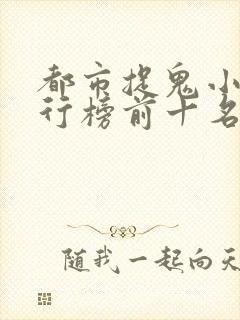 都市捉鬼小
行榜前十名
随我一起向天